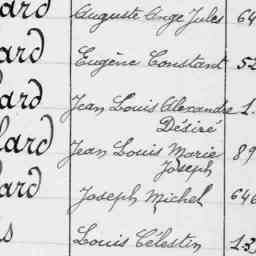 ard Auguste Ange Jules 64
ard Eugène Constant 52
ard Jean Louis Alexandre 1.
Désiré
lard Jean Louis Marie 89
Joseph
ard Joseph Michel 646
s Louis Célestin 1.3